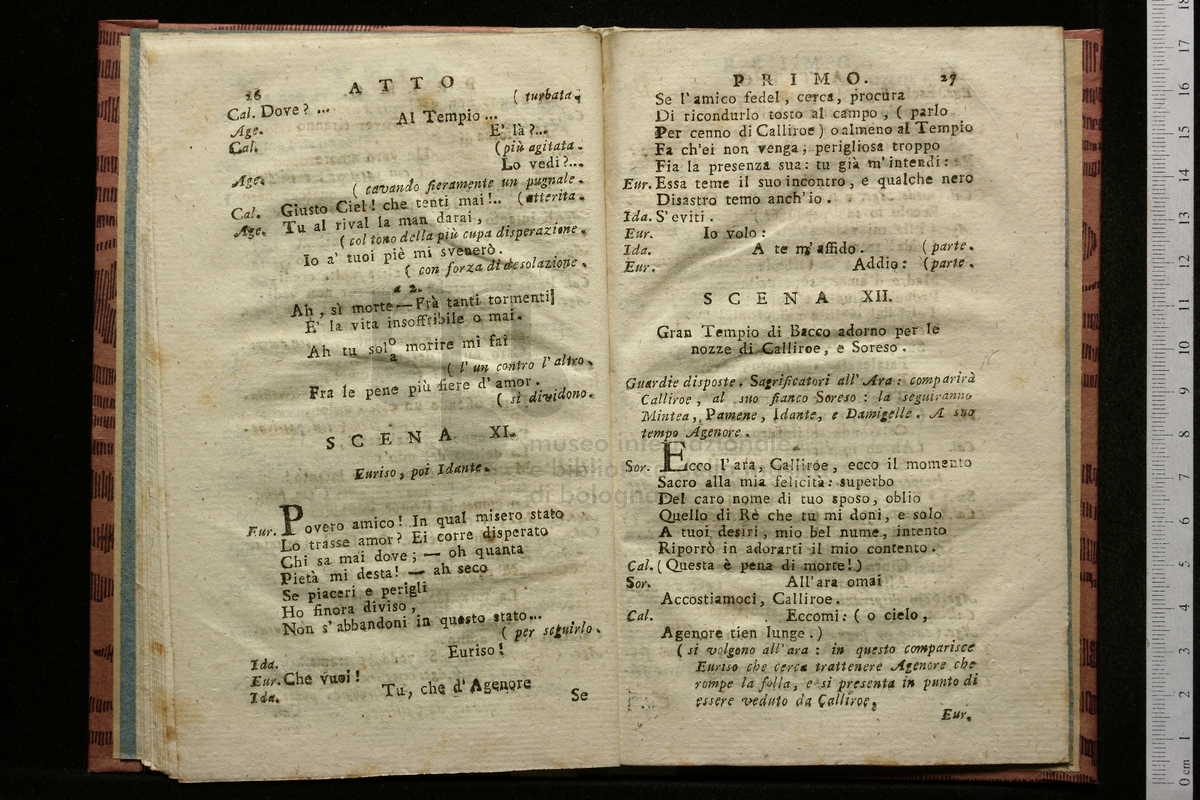 26 ATTO
( turbata.
Cal. Dove? ...
Age. Al Tempio ...
Cal. E' là?...
(più agitata.
Age. Lo vedi?...
( cavando fieramente un pugnale.
Cal. Giusto Ciel! che tenti mai!.. (atterita.
Age. Tu al rival la man darai,
( col tono della più cupa disperazione.
Io a' tuoi piè mi svenerò.
( con forza di desolazione.
a 2.
Ah, sì morte — Frà tanti tormenti
E' la vita insoffribile o mai.
Ah tu solo/a morire mi fai
( l'un contro l'altro.
Fra le pene più fiere d'amor.
( si dividono.
SCENA XI.
Euriso, poi Idante.
Eur. Povero amico! In qual misero stato
Lo trasse amor? Ei corre disperato
Chi sa mai dove; — oh quanta
Pietà mi desta! — ah seco
Se piaceri e perigli
Ho finora diviso,
Non s'abbandoni in questo stato...
( per seguirlo.
Ida. Euriso!
Eur. Che vuoi!
Ida. Tu, che d'Agenore
Se
PRIMO. 27
Se l'amico fedel, cerca, procura
Di ricondurlo tosto al campo, ( parlo
Per cenno di Calliroe) o almeno al Tempio
Fa ch'ei non venga; perigliosa troppo
Fia la presenza sua: tu già m'intendi:
Eur. Essa teme il suo incontro, e qualche nero
Disastro temo anch'io.
Ida. S'eviti.
Eur. Io volo:
Ida. A te m'affido. (parte.
Eur. Addio: (parte.
SCENA XII.
Gran Tempio di Bacco adorno per le
nozze di Calliroe, e Soreso.
Guardie disposte. Sagrificatori all'Ara: comparirà
Calliroe, al suo fianco Soreso: la seguiranno
Mintea, Pamene, Idante, e Damigelle. A suo
tempo Agenore.
Sor. Ecco l'ara, Calliroe, ecco il momento
Sacro alla mia felicità: superbo
Del caro nome di tuo sposo, oblio
Quello di Rè che tu mi doni, e solo
A tuoi desiri, mio bel nume, intento
Riporrò in adorarti il mio contento.
Cal. (Questa è pena di morte!)
Sor. All'ara omai
Accostiamoci, Calliroe.
Cal. Eccomi: ( o cielo,
Agenore tien lunge.)
( si volgono all'ara: in questo comparisce
Euriso che cerca trattenere Agenore che
rompe la folla, e si presenta in punto di
essere veduto da Calliroe,
Eur.
museo internazionale
e bibliote
di bologna
0 cm 1 2 3 4 5 6 7 8 9 10 11 12 13 14 15 16 17 18